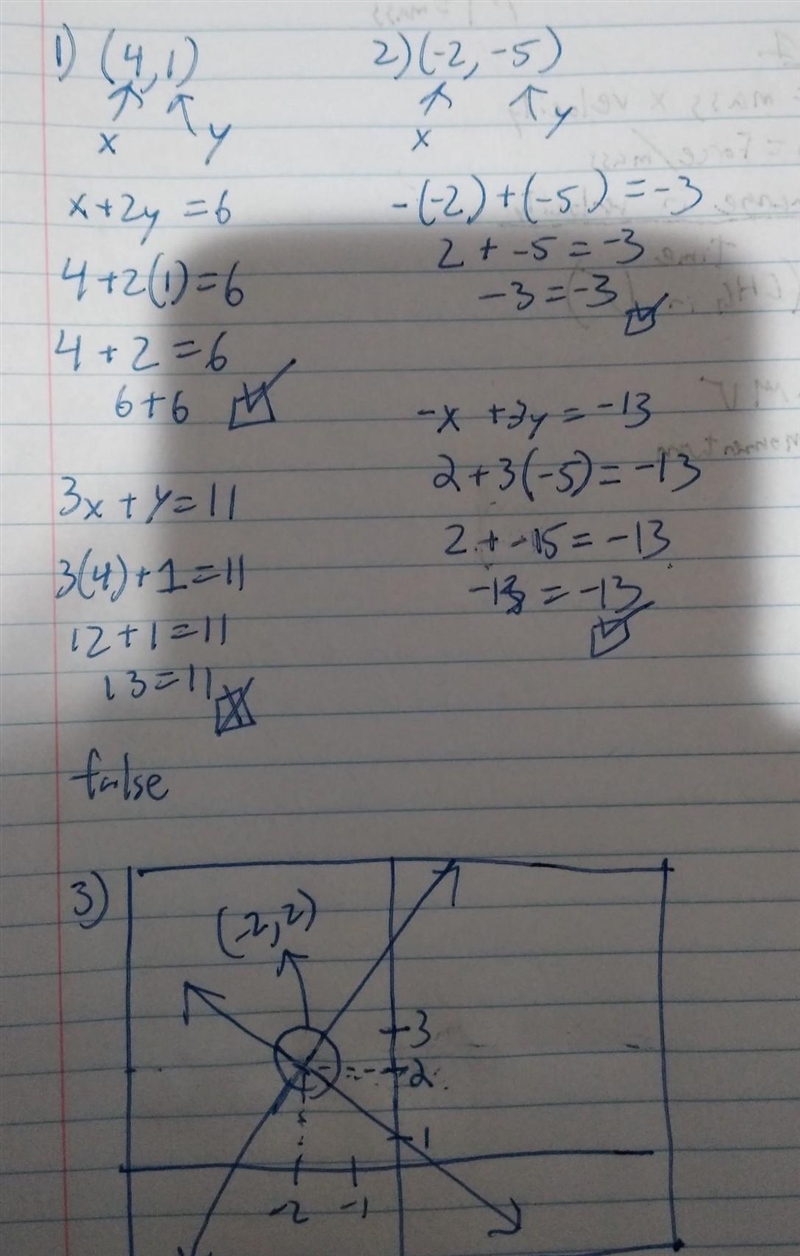 1) (4,1)
x
y
x+2y=6
4+2(1)=6
4+2=6
6+6
3x+y=11
3(4)+1=11
12+1=11
13=11
false
2)(-2,-5)
x
y
-(-2)+(-5)=-3
2+-5=-3
-3=-3
-x+3y=-13
2+3(-5)=-13
2+-15=-13
-13=-13
3)
(-2,2)
3
2
1
-2 -1
mass
= mass x velocity
= Force/mass
time
MV
momentum